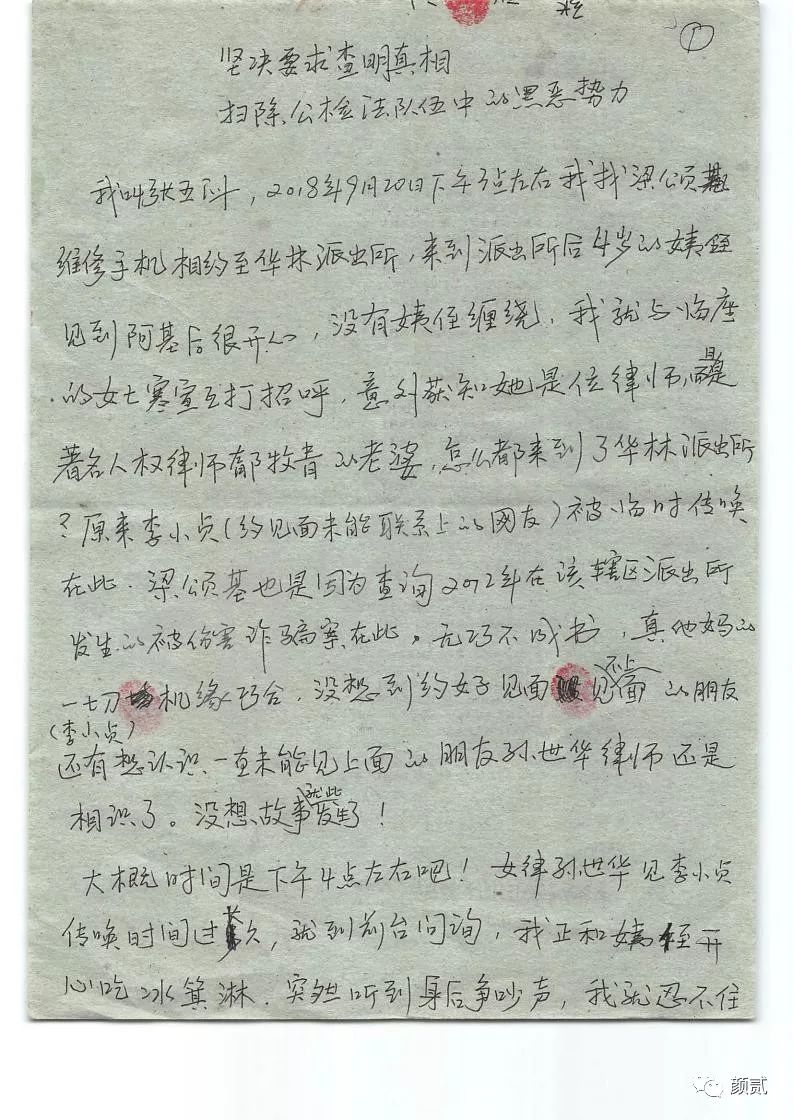 ①
坚决要求查明真相
扫除公检法队伍中的黑恶势力
我叫张五洲，2018年9月20日下午3点左右我找梁颂基
维修手机相约至华林派出所，来到派出所后4岁的姨侄
见到阿基后很开心，没有姨侄缠绕，我就与临座
的女士寒宣互打招呼，意外获知她是位律师，而且是
著名人权律师鄢牧青的老婆，怎么都来到了华林派出所
？原来李小贞（约见面未能联系上的网友）被临时传唤
在此．梁颂基也是因为查询2012年在该辖区派出所
发生的被伤害诈骗案在此。无巧不成书，真他妈的
一切机缘巧合，没想到约好见面见不上面的朋友
（李小贞）
还有想认识、一直未能见上面的朋友孙世华律师还是
相识了。没想故事就此发生了！
大概时间是下午4点左右吧！女律孙世华见李小贞
传唤时间过久，就到前台问询，我正和姨侄开
心吃冰箕淋．突然听到身后争吵声，我就忍不住
颜贰